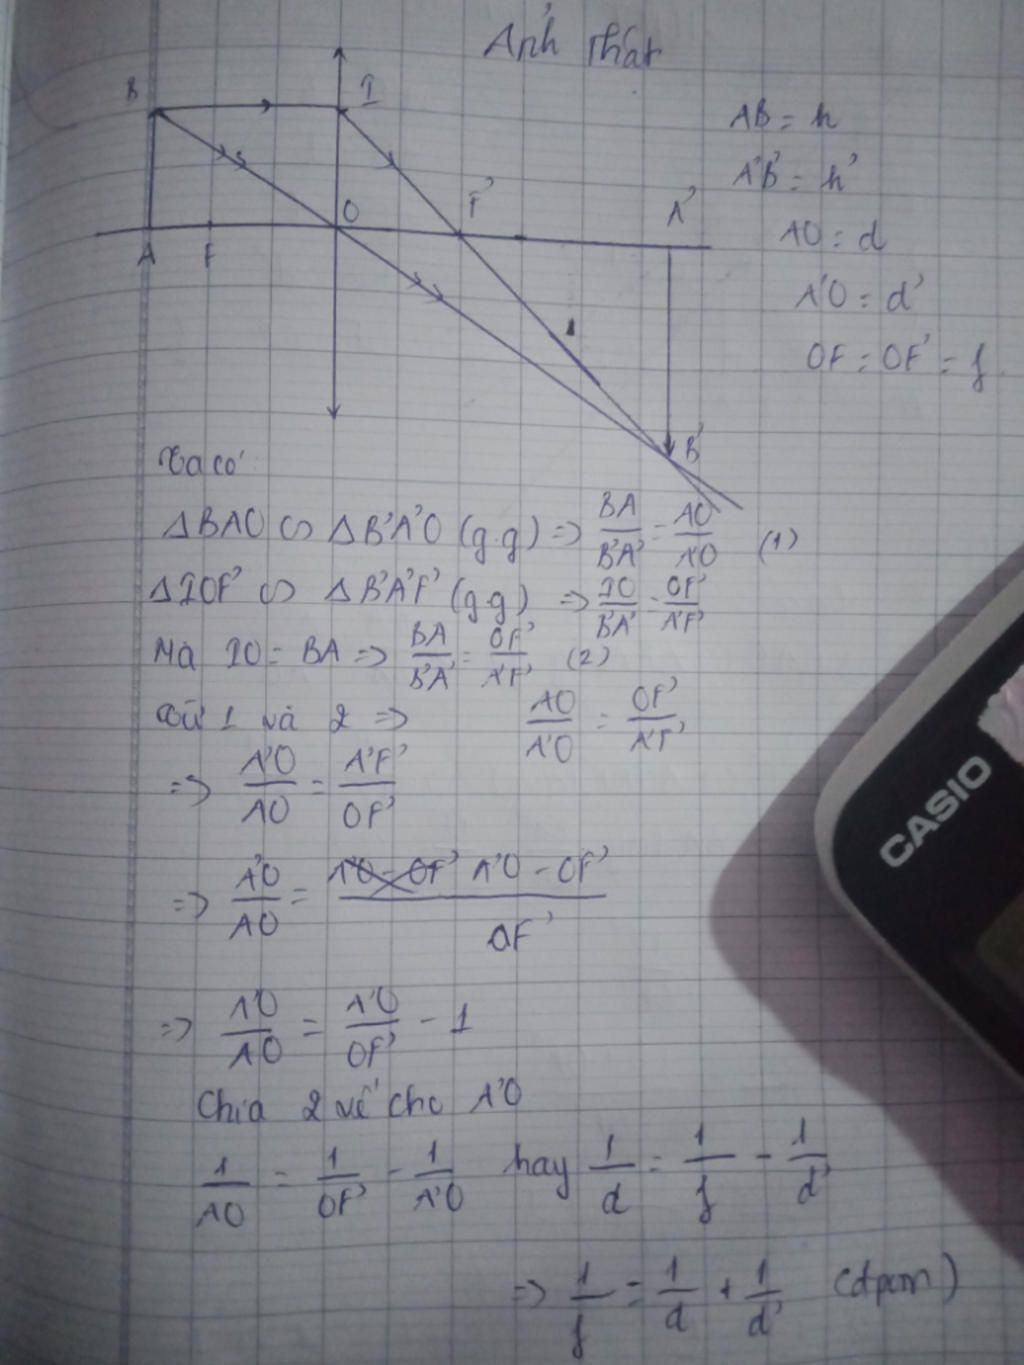 Ảnh thật
B I
AB = h
A'B' = h'
O F' A'
AO = d
A F
A'O = d'
OF = OF' = f
B'
Ta có
ΔBAO ∽ ΔB'A'O (g.g) => BA/B'A' = AO/A'O (1)
ΔIOF' ∽ ΔB'A'F' (g.g) => IO/B'A' = OF'/A'F'
Mà IO = BA => BA/B'A' = OF'/A'F' (2)
Từ 1 và 2 => AO/A'O = OF'/A'F'
=> A'O/AO = A'F'/OF'
=> A'O/AO = (A'O - OF')/OF'
=> A'O/AO = A'O/OF' - 1
Chia 2 vế cho A'O
1/AO = 1/OF' - 1/A'O hay 1/d = 1/f - 1/d'
=> 1/f = 1/d + 1/d' (đpcm)
CASIO